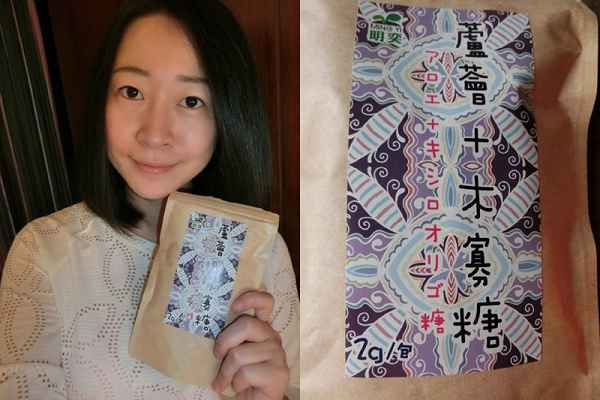 明奕
蘆薈+木寡糖
アロエ+キシロオリゴ糖
2g/包